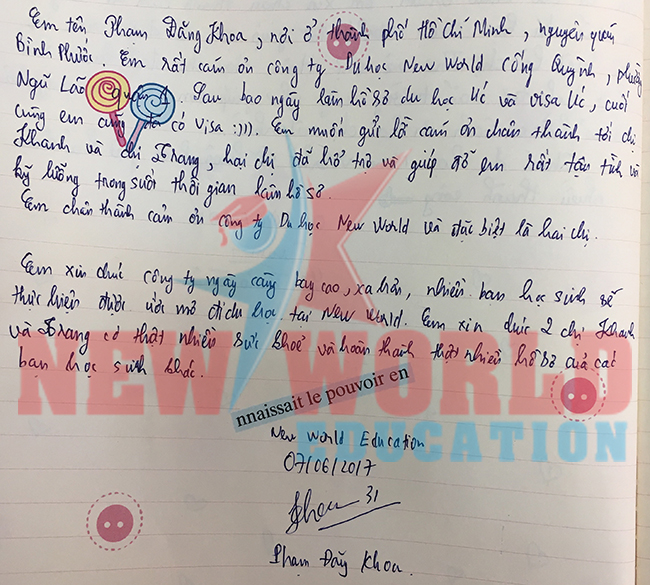 Em tên Phạm Đăng Khoa, nơi ở thành phố Hồ Chí Minh, nguyên quán
Bình Phước. Em rất cám ơn công ty Du học New World Cống Quỳnh, phường
Ngũ Lão quận 1. Sau bao ngày làm hồ sơ du học Úc và visa Úc, cuối
cùng em cũng đã có visa :))). Em muốn gửi lời cám ơn chân thành tới chị
Khanh và chị Trang, hai chị đã hỗ trợ và giúp đỡ em rất tận tình và
kỹ lưỡng trong suốt thời gian làm hồ sơ.
Em chân thành cảm ơn công ty Du học New World và đặc biệt là hai chị.
Em xin chúc công ty ngày càng bay cao, xa hơn, nhiều bạn học sinh sẽ
thực hiện được ước mơ đi du học tại New World. Em xin chúc 2 chị Khanh
và Trang có thật nhiều sức khoẻ và hoàn thành thật nhiều hồ sơ của các
bạn học sinh khác.
NEW WORLD
EDUCATION
nnaissait le pouvoir en
New World Education
07/06/2017
Khoa 31
Phạm Đăng Khoa.